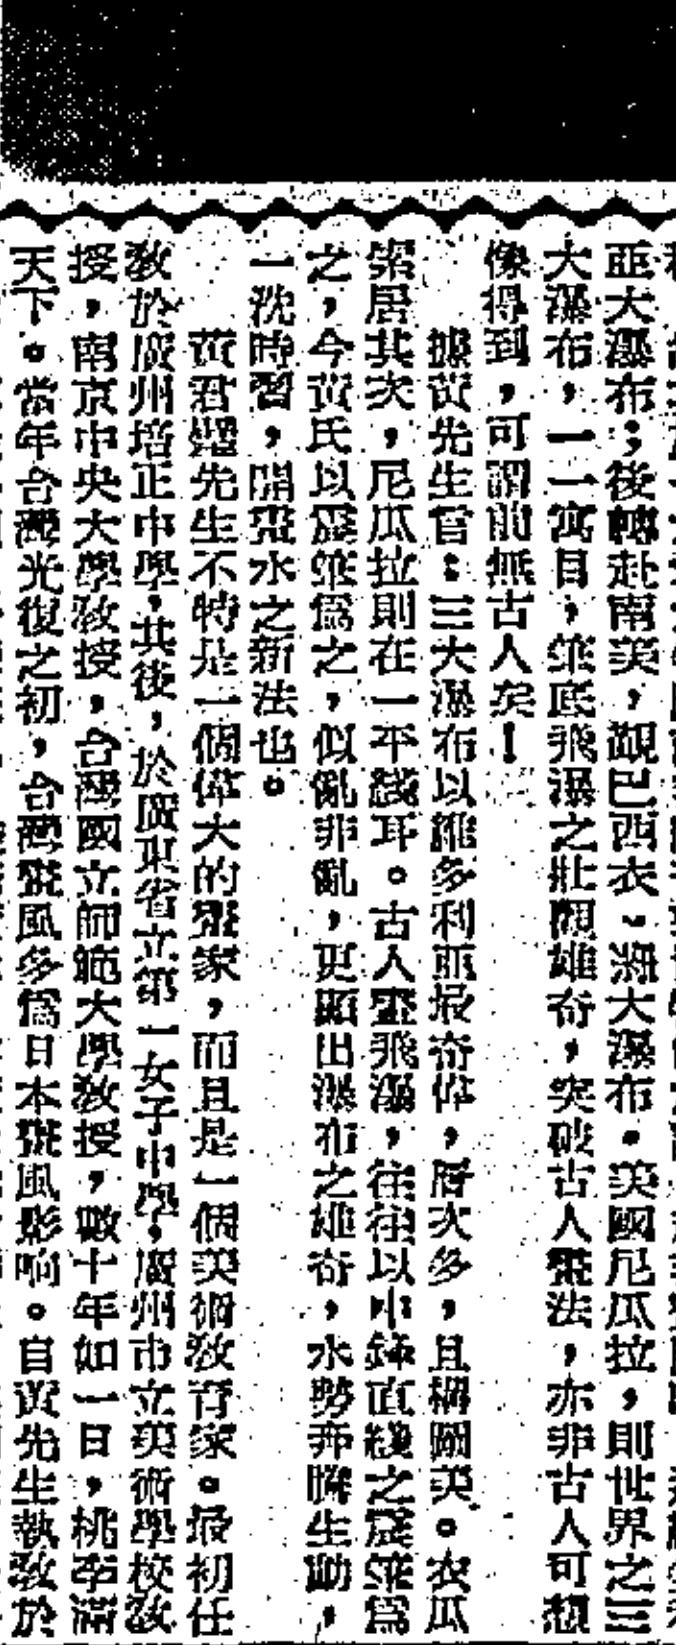 亞大瀑布；後轉赴南美，觀巴西衣、淵大瀑布。美國尼瓜拉，則世界之三
大瀑布，一一寓目，筆底飛瀑之壯觀雄奇，突破古人畫法，亦非古人可想
像得到，可謂前無古人矣！
據黃先生言：三大瀑布以維多利亞最奇偉，層次多，且構圖美。衣瓜
梁居其次，尼瓜拉則在一平綫耳。古人畫飛瀑，往往以中鋒直綫之筆爲
之，今黃氏以震筆爲之，似亂非亂，更顯出瀑布之雄奇，水勢奔騰生動，
一洗時習，開畫水之新法也。
黃君璧先生不特是一個偉大的畫家，而且是一個美術敎育家。最初任
敎於廣州培正中學，其後，於廣東省立第一女子中學，廣州市立美術學校敎
授，南京中央大學敎授，台灣國立師範大學敎授，數十年如一日，桃李滿
天下。當年台灣光復之初，台灣畫風多爲日本畫風影响。自黃先生執敎於